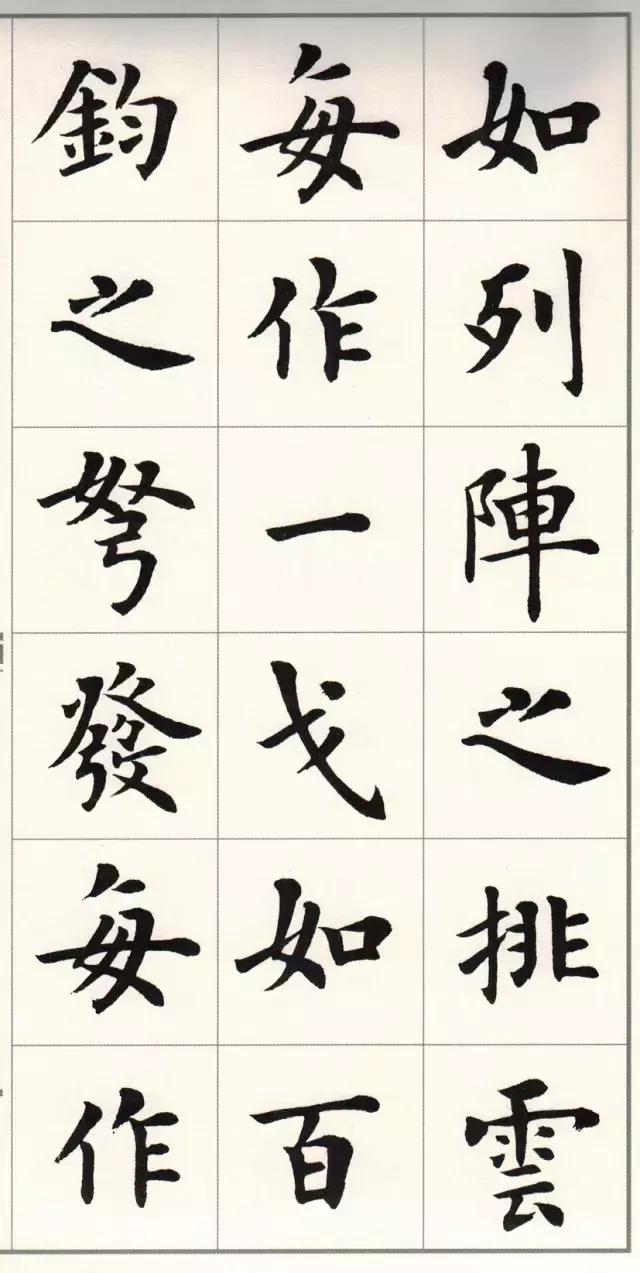 如列陣之排雲
每作一戈如百
鈞之弩發每作